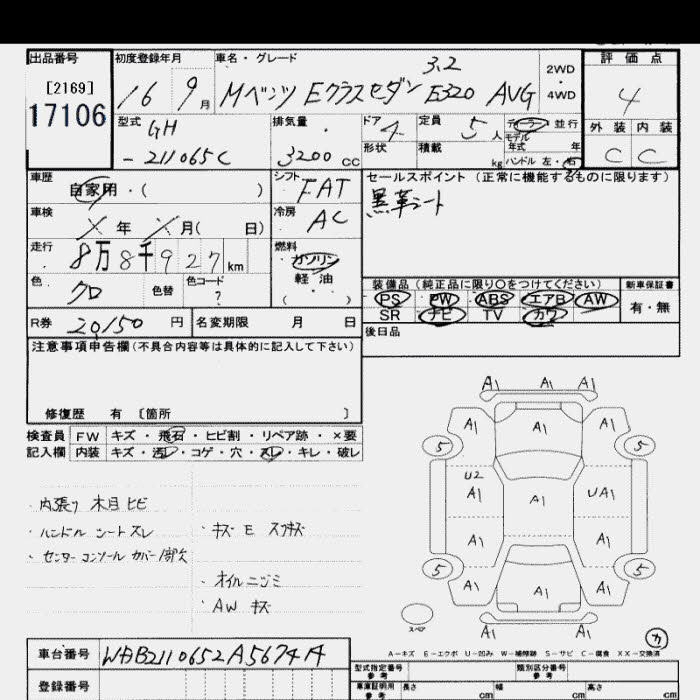 出品番号 初度登録年月 車名・グレード 評価点
[2169] 3.2 2WD
17106 16 9月 Mベンツ Eクラスセダン E320 AVG ・4WD 4
型式 GH 排気量 ドア 4 定員 5人 ディーラー 並行 外装 内装
モデル年式 年
-211065C 3200 CC 形状 積載 kg ハンドル 左・右 C C
車歴 シフト FAT セールスポイント (正常に機能するものに限ります)
自家用・( ) 黒革シート
車検 × 年 × 月( 日) 冷房 AC
走行 8万8千927km 燃料 ガソリン
軽油
( ・ )
色 クロ 色替 色コード ? 装備品 (純正品に限り○をつけてください) 新車保証書
PS PW ABS エアB AW 有・無
R券 20150円 名変期限 月 日 SR ナビ TV カワ
注意事項申告欄 (不具合内容等は具体的に記入して下さい) 後日品
修復歴 有 〔箇所 〕
検査員 FW キズ・飛石・ヒビ割・リペア跡・×要
記入欄 内装 キズ・汚レ・コゲ・穴・スレ・キレ・破レ
A1 A1 A1
A1 A1 A1
5 5
U2
A1 A1 UA1
A1 A1
5 5
A1 A1 A1
A1 A1
・内張り 木目ヒビ
・ハンドル シート スレ ・キズ E スリキズ
・センターコンソール カバー1部欠
・オイルニジミ
・AW キズ
スペア
カ
A－キズ E－エクボ U－凹み W－補修跡 S－サビ C－腐食 XX－交換済
車台番号 WDB2110652A567414
型式指定番号 参考 類別区分番号 参考
登録番号 車庫証明用 参考 長さ cm 幅 cm 高さ cm